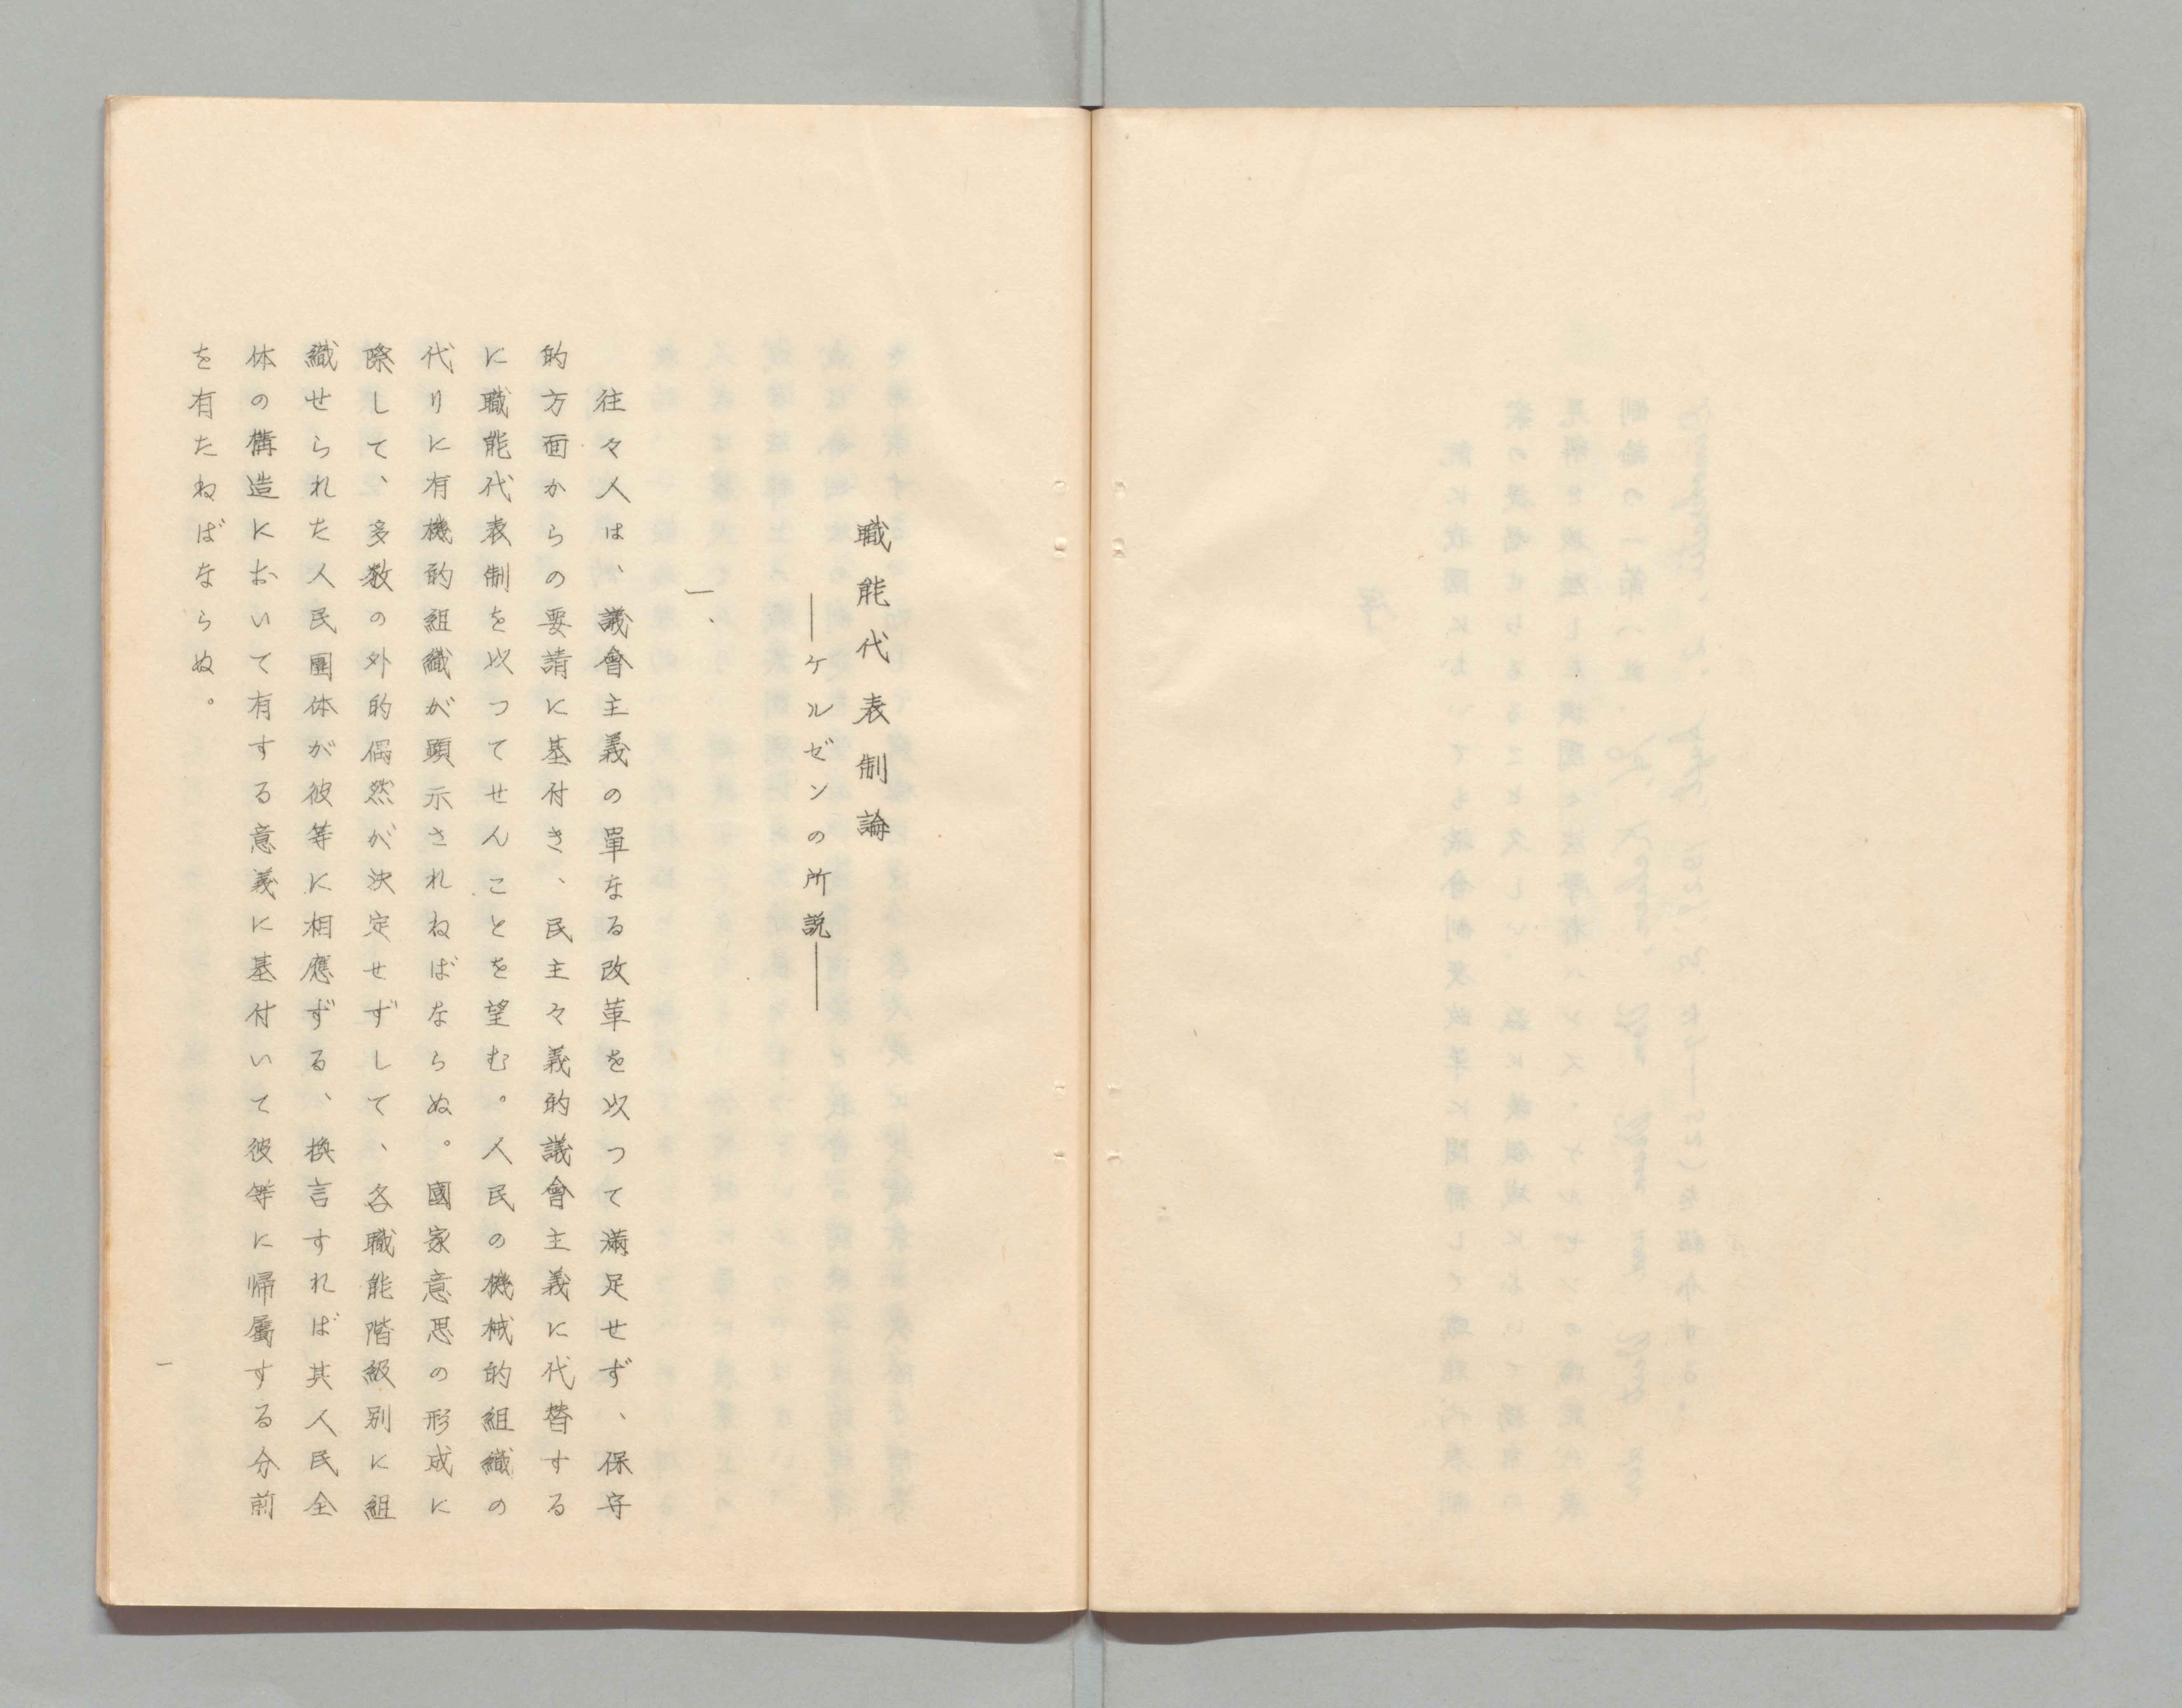 職能代表制論
——ケルゼンの所説——
一、
往々人は、議會主義の單なる改革を以つて滿足せず、保守
的方面からの要請に基付き、民主々義的議會主義に代替する
に職能代表制を以つてせんことを望む。人民の機械的組織の
代りに有機的組織が顕示されねばならぬ。國家意思の形成に
際して、多数の外的偶然が決定せずして、各職能階級別に組
織せられた人民團体が彼等に相應ずる、換言すれば其人民全
体の構造において有する意義に基付いて彼等に帰屬する分前
を有たねばならぬ。
一